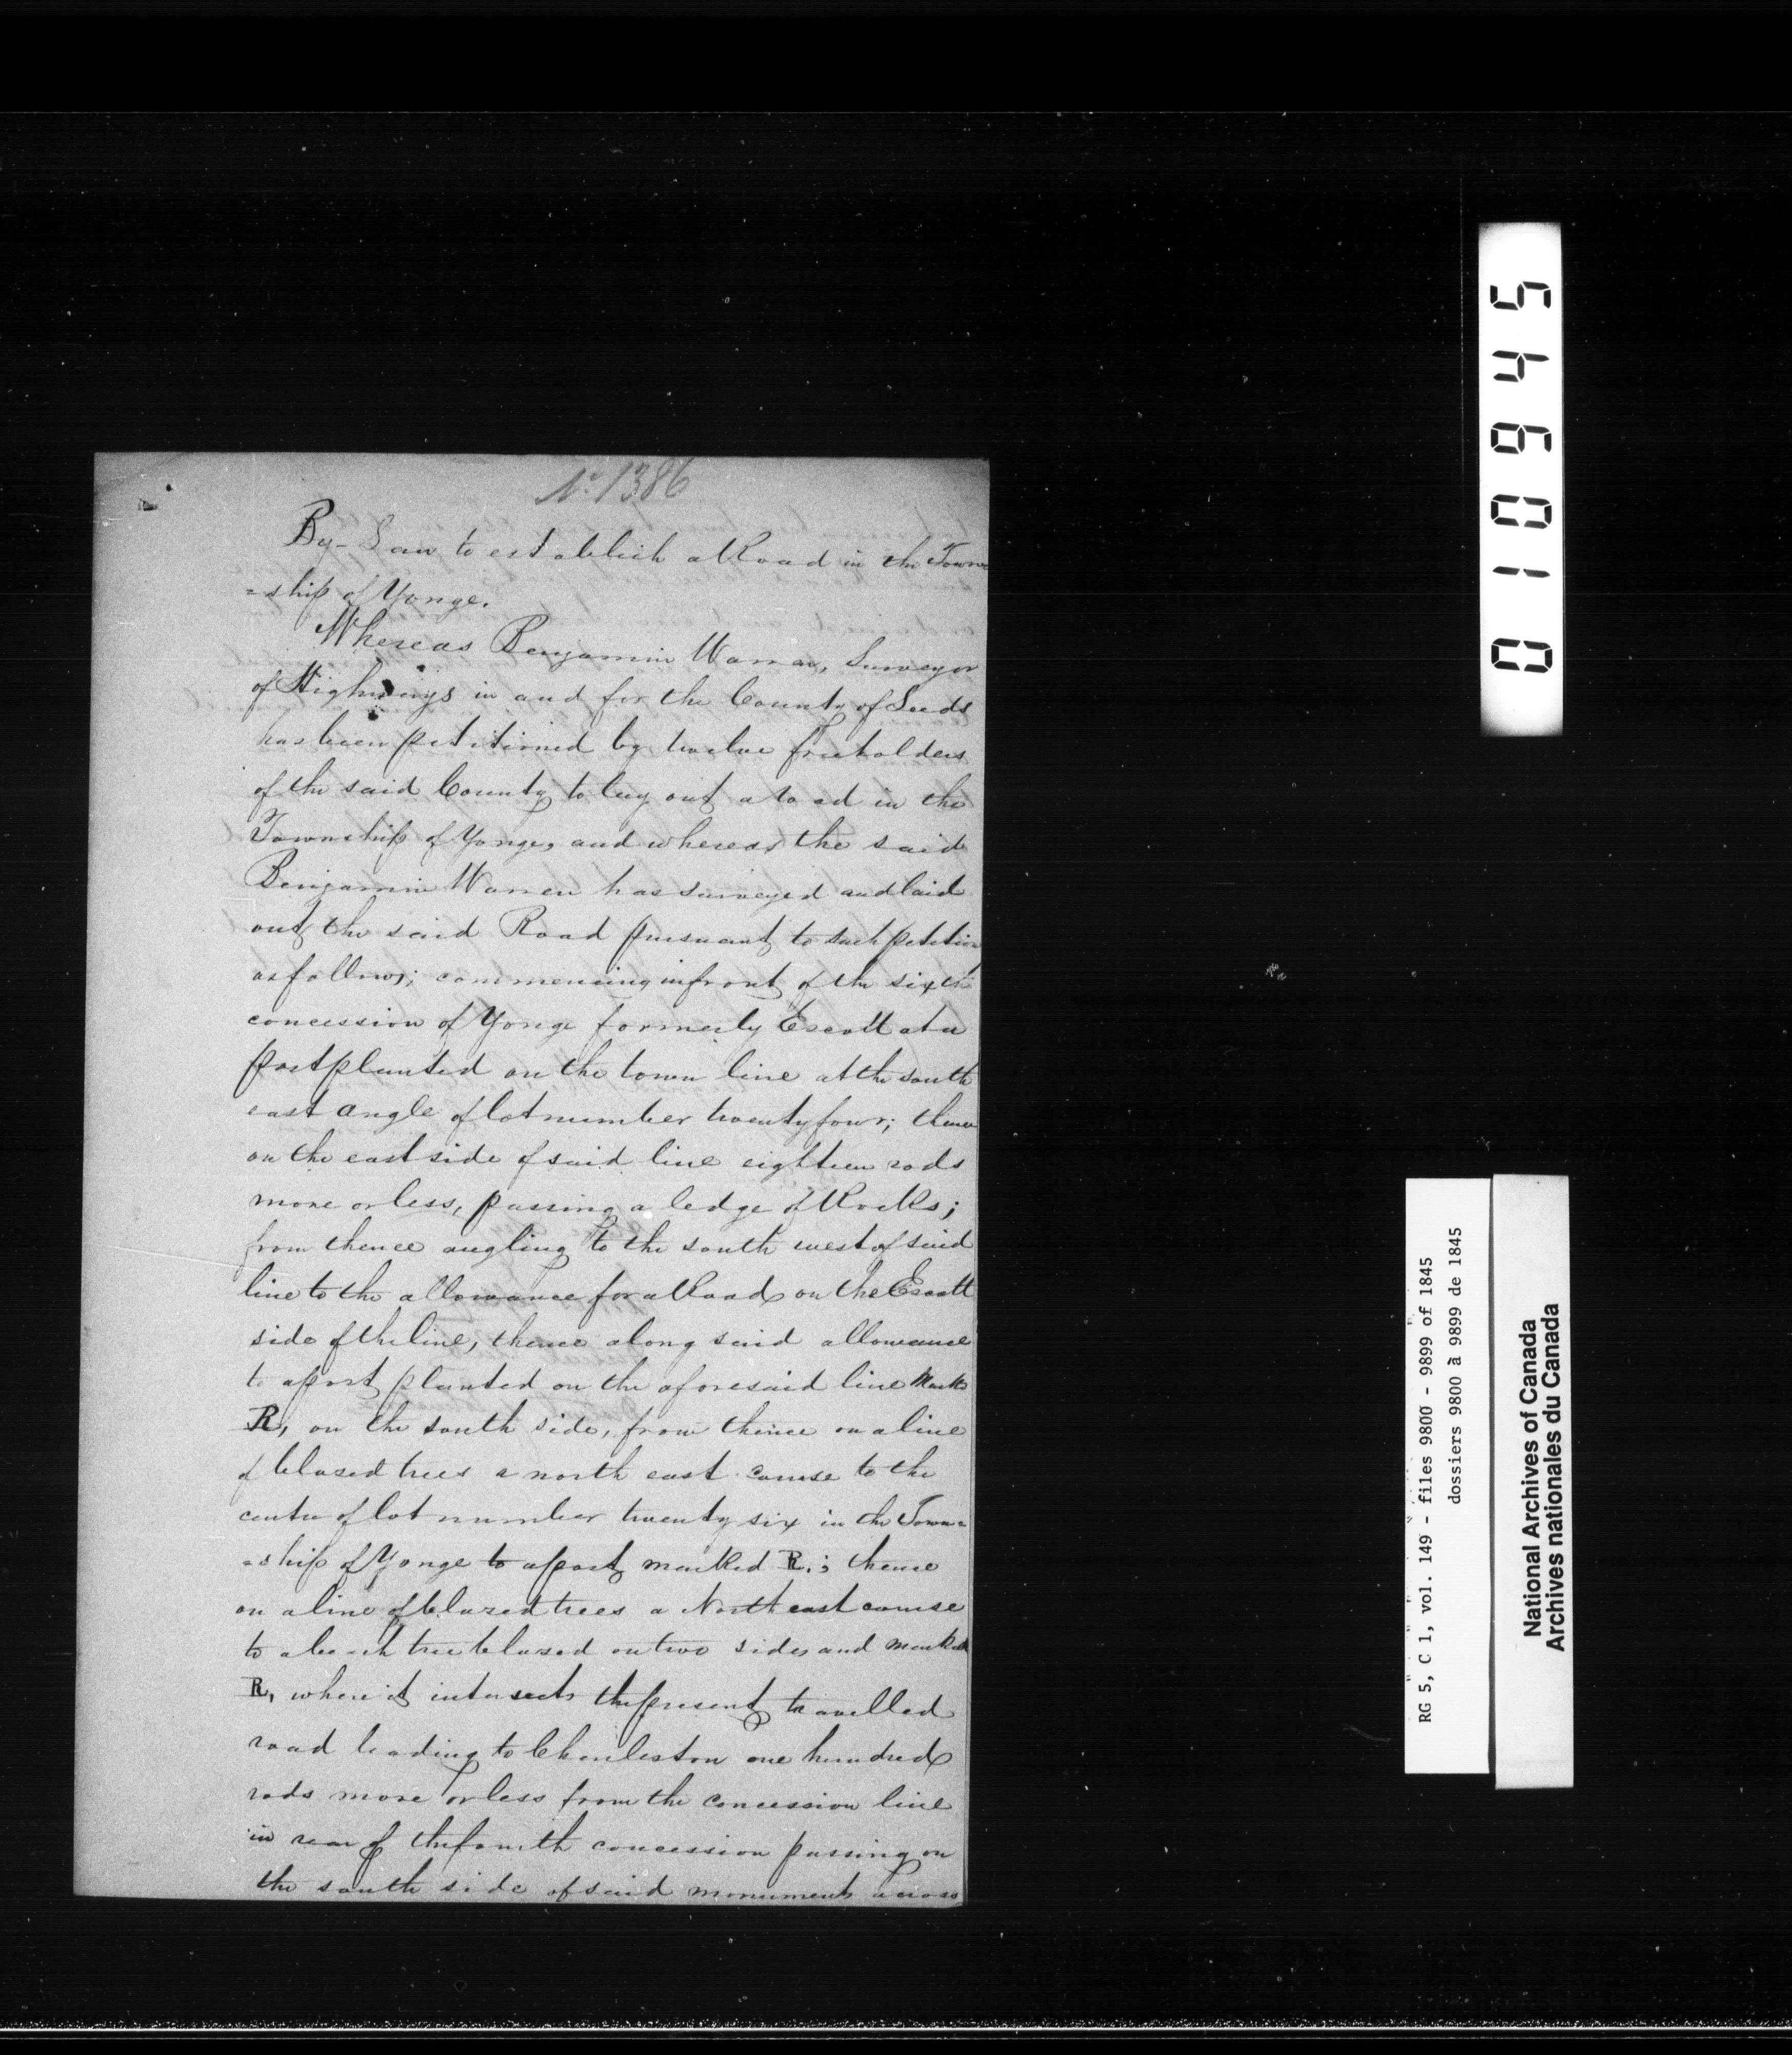 No. 1386
By-Law to establish a Road in the Town
=ship of Yonge.
Whereas Benjamin Warren, Surveyor
of Highways in and for the County of Leeds
has been petitioned by twelve freeholders
of the said County to lay out a Road in the
Township of Yonge, and whereas the said
Benjamin Warren has surveyed and laid
out the said Road pursuant to such petition
as follows; commencing in front of the sixth
concession of Yonge formerly Escott at a
post planted on the town line at the south
east angle of lot number twenty four; thence
on the east side of said line eighteen rods
more or less, passing a ledge of Rocks;
from thence angling to the south west of said
line to the allowance for a Road on the Escott
side of the line, thence along said allowance
to a post planted on the aforesaid line
R, on the south side, from thence on a line
of blazed trees a north east course to the
centre of lot number twenty six in the Town=
=ship of Yonge to a post marked R.; thence
on a line of blazed trees a North east course
to a beech tree blazed on two sides and marked
R, where it intersects the present travelled
road leading to Charleston one hundred
rods more or less from the concession line
in rear of the fourth concession passing on
the south side of said monument across
010945
RG 5, C 1, vol. 149 - files 9800 - 9899 of 1845
dossiers 9800 à 9899 de 1845
National Archives of Canada
Archives nationales du Canada